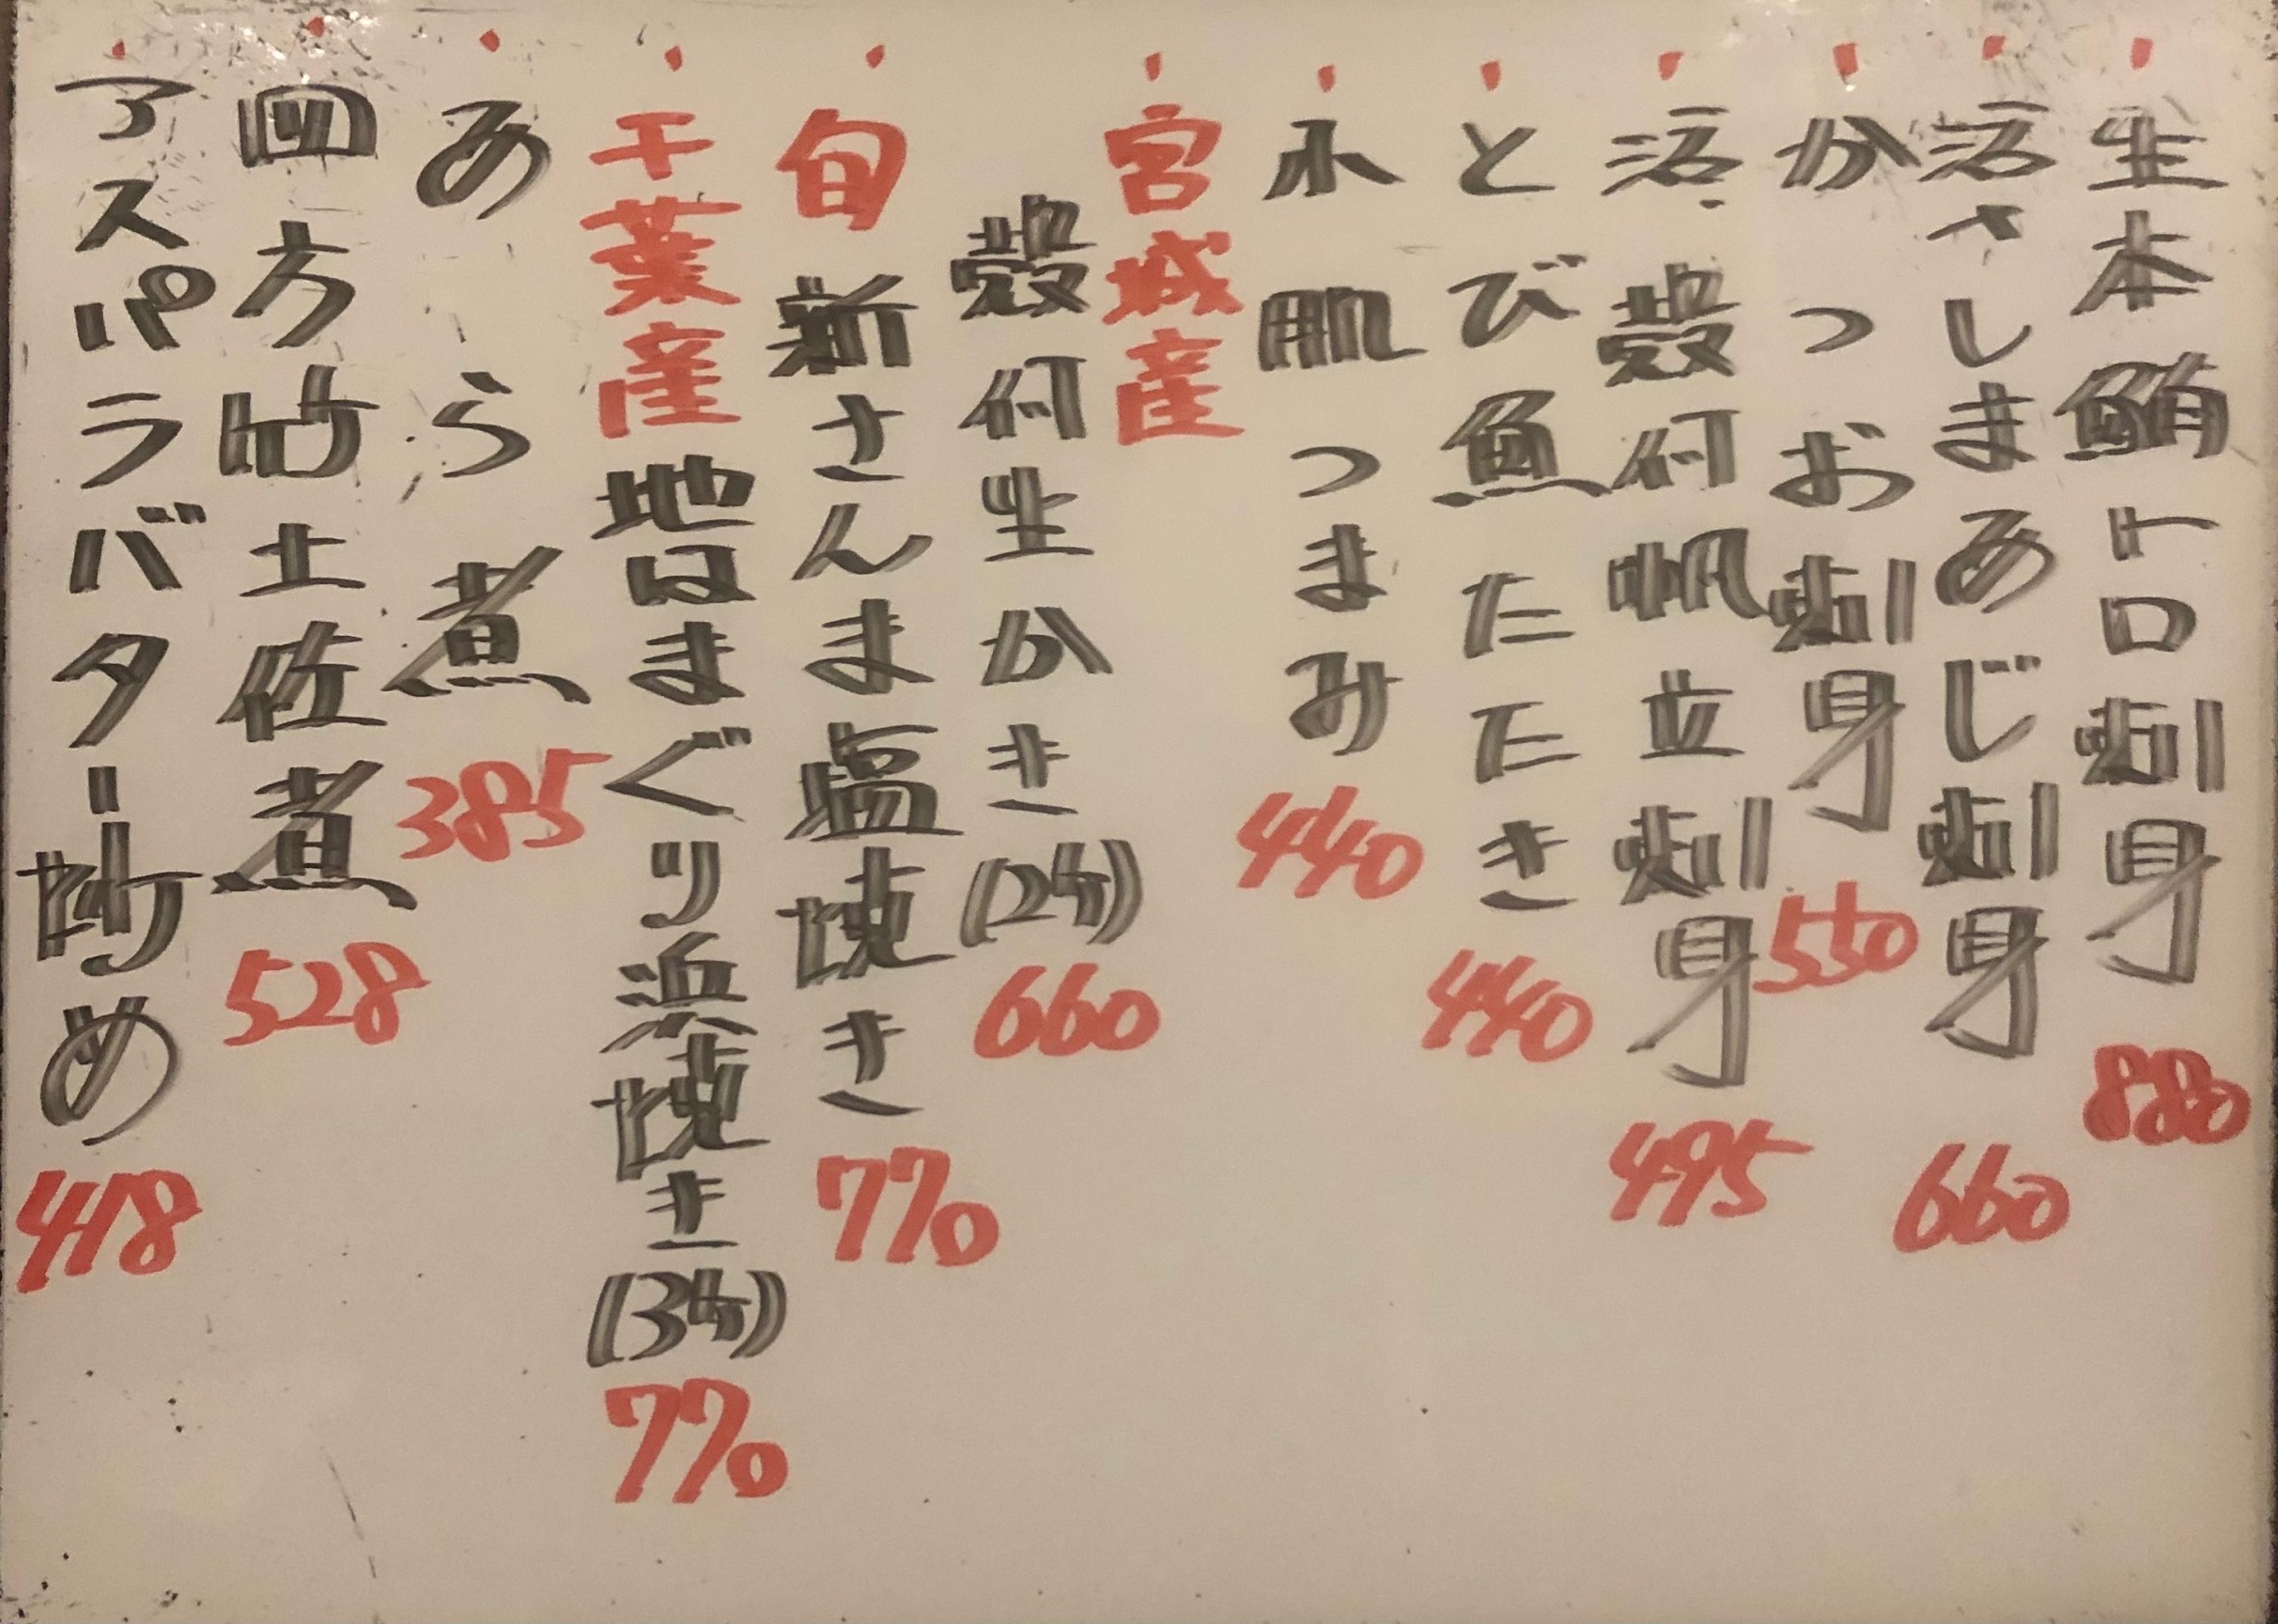 生本鮪トロ刺身 880
活さしまあじ刺身 660
かつお刺身 550
活、殻付帆立刺身 495
とび魚たたき 440
氷肌つまみ 440
宮城産
殻付生かき(2ケ) 660
旬新さんま塩焼き 770
千葉産地はまぐり浜焼き(3ケ) 770
あら煮 385
四方竹土佐煮 528
アスパラバター炒め 418